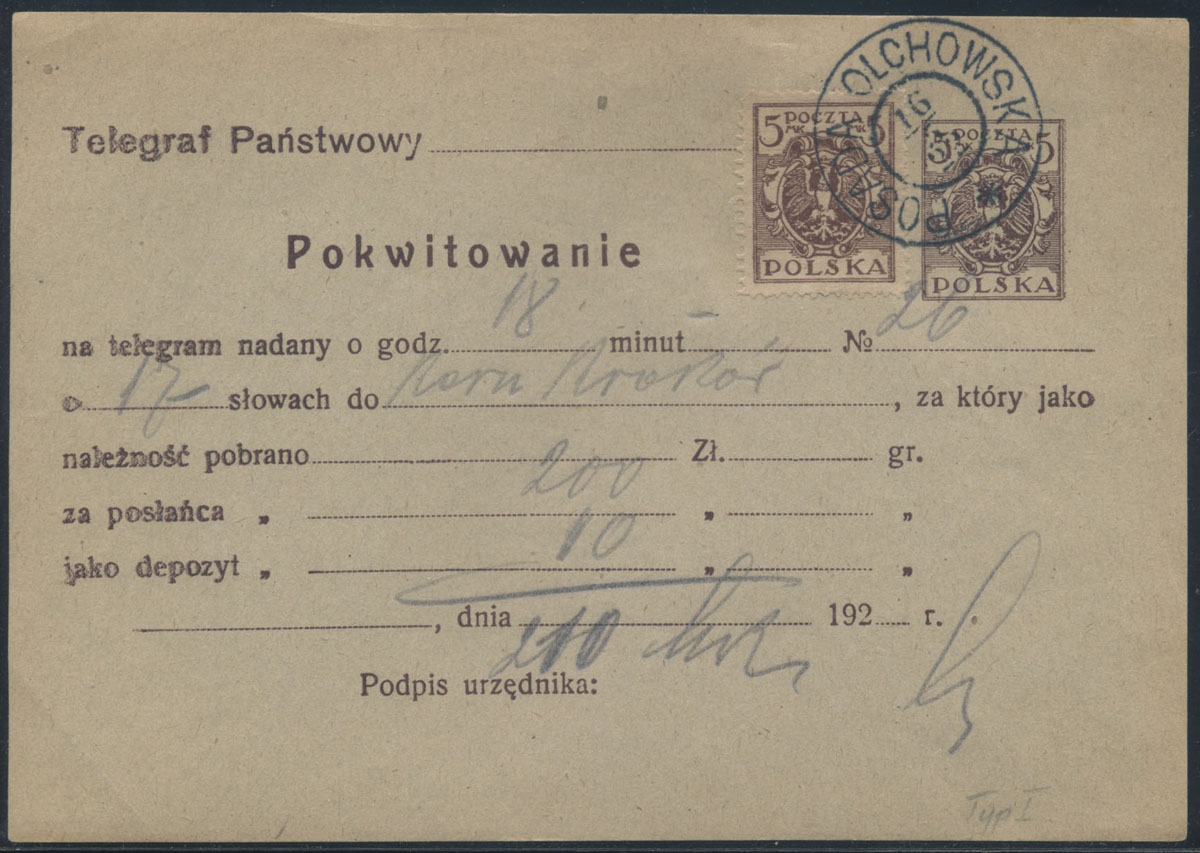 POSADA OLCHOWSKA *
16
5 POCZTA 5
MK MK
POLSKA
5 POCZTA 5
POLSKA
Telegraf Państwowy
Pokwitowanie
na telegram nadany o godz. 18 minut № 26
o 17 słowach do Kraków, za który jako
należność pobrano 200 Zł. gr.
za posłańca „ 10 „ „
jako depozyt „ „ „
, dnia 192 r.
210 Mk
Podpis urzędnika:
Typ I